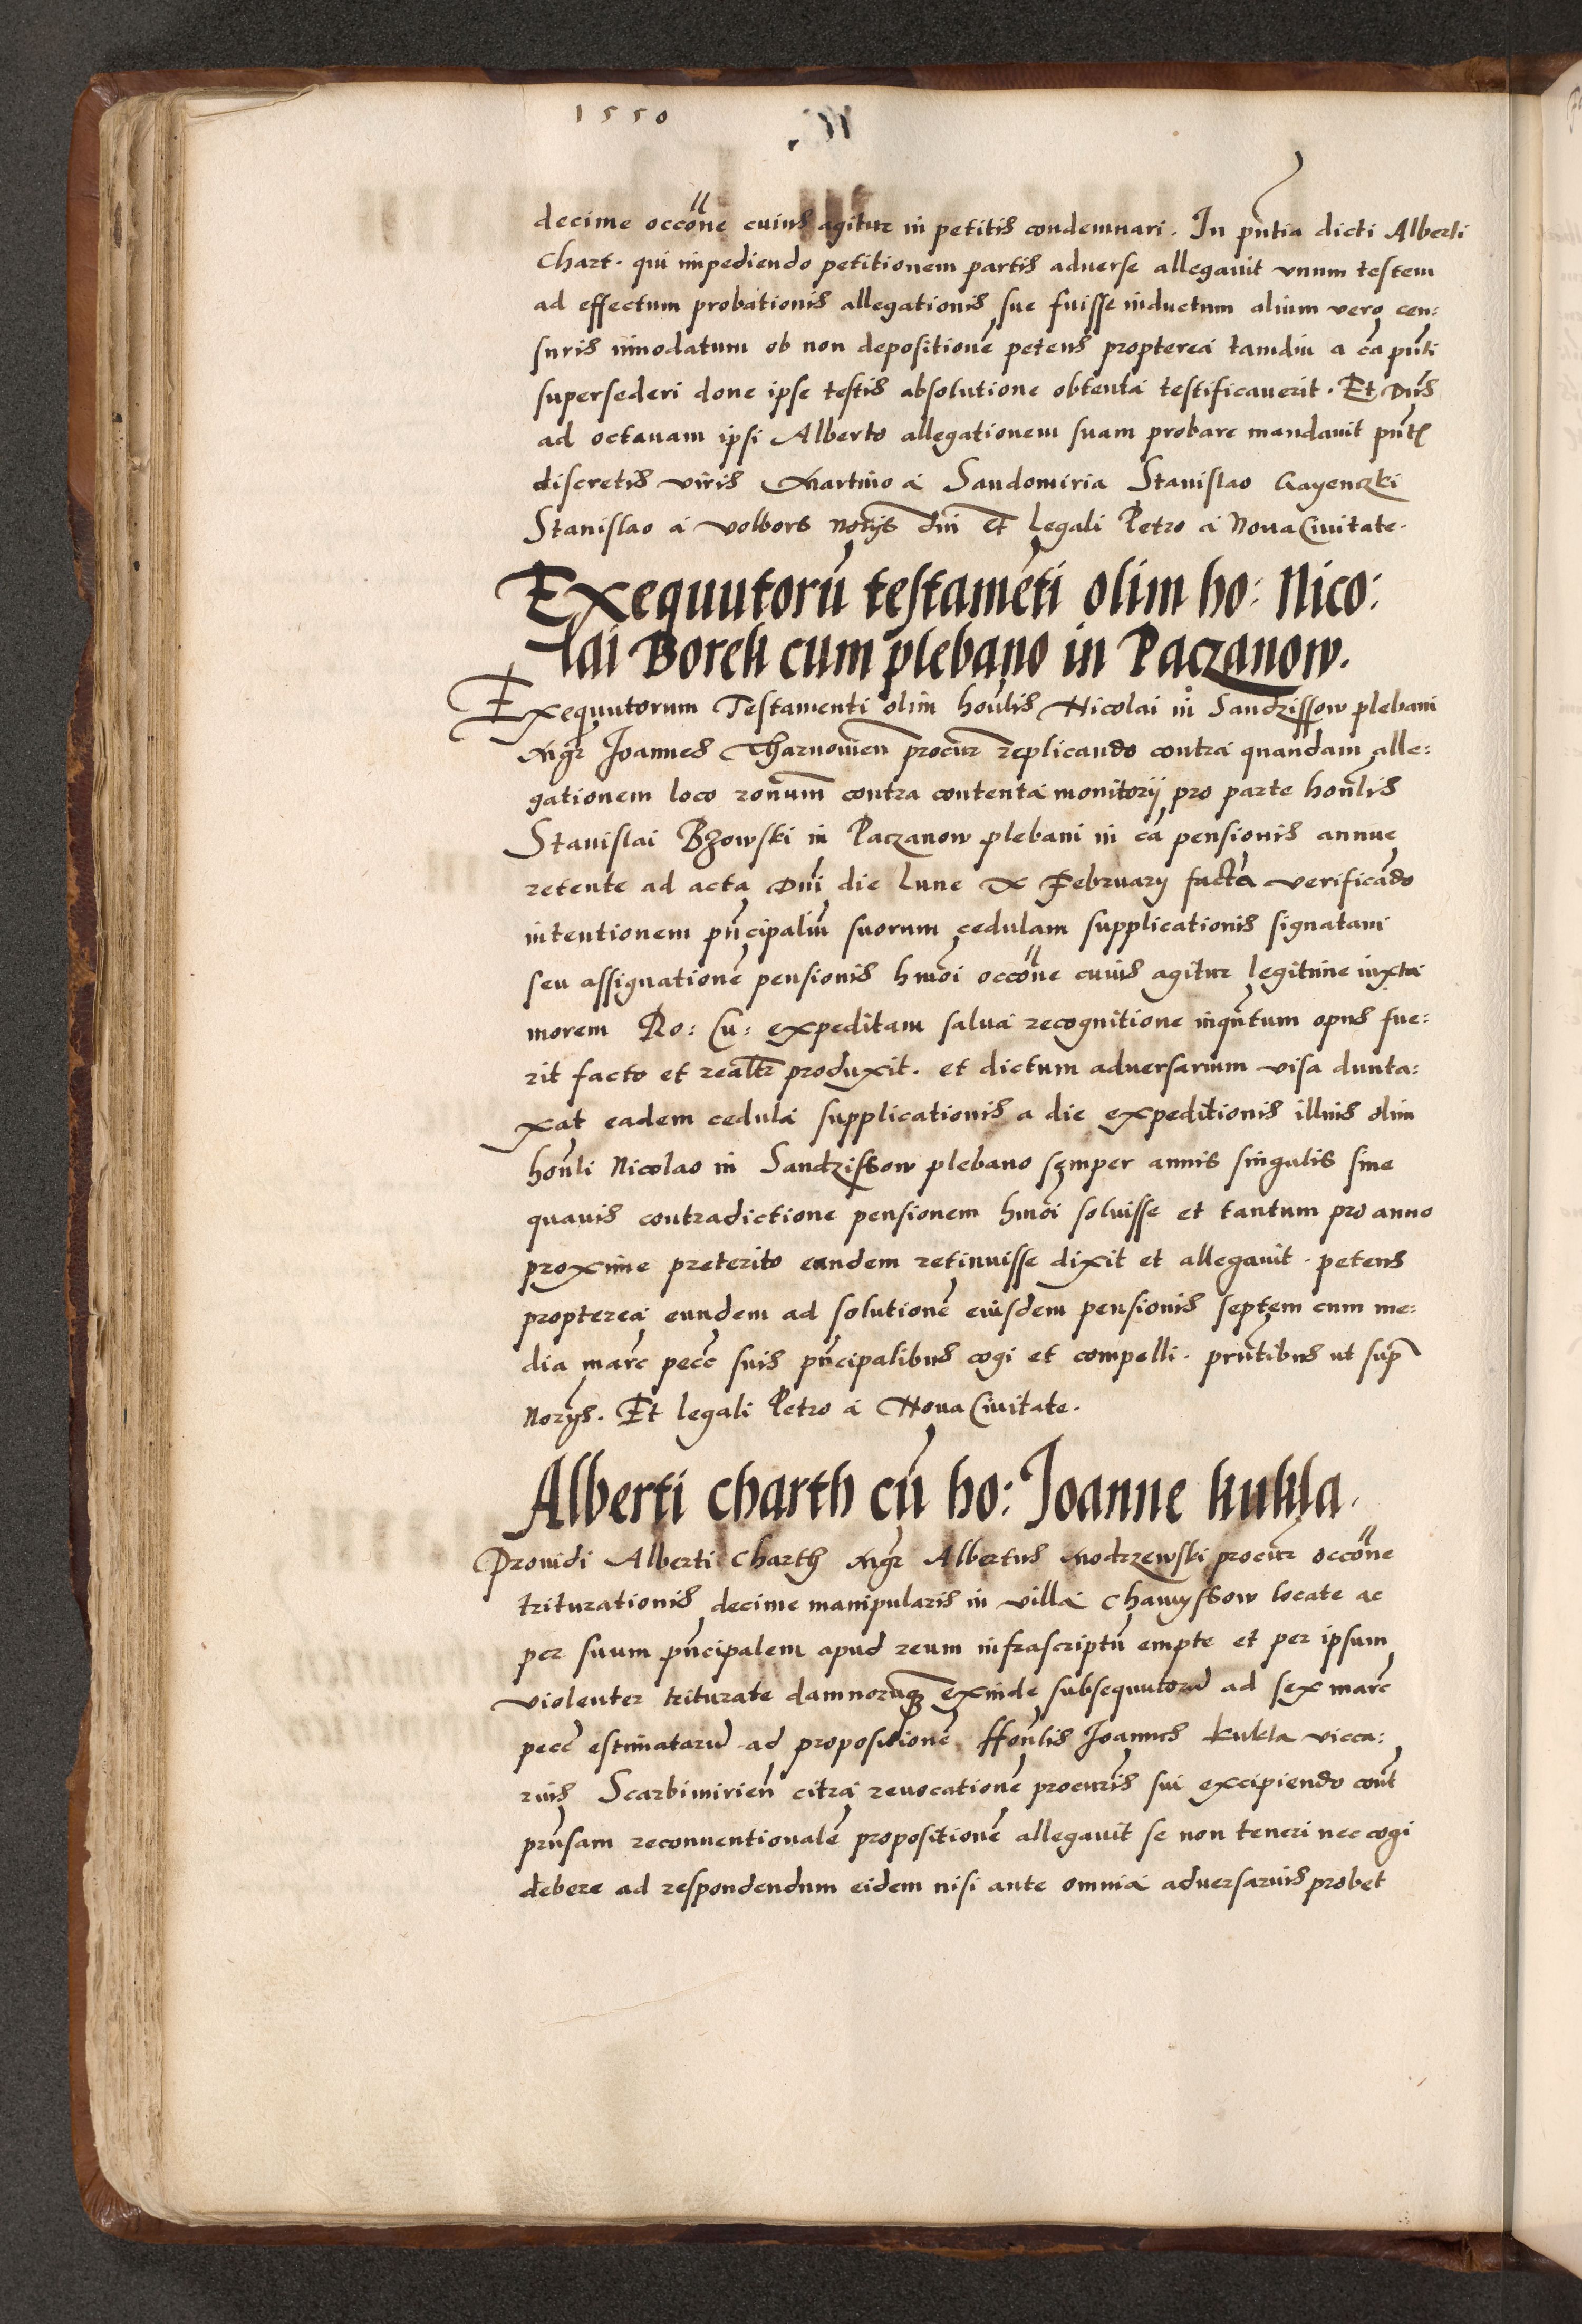 1550
decime occōne cuius agitur in petitis condemnari. In pn̄tia dicti Alberti
Chart. qui impediendo petitionem partis adverse allegauit vnum testem
ad effectum probationis allegationis sue fuisse inductum alium vero cen:
suris innodatum ob non depositionē petens propterea tamdiu a cā pn̄ti
supersederi donc ipse testis absolutione obtenta testificauerit. Et Dn̄s
ad octauam ipsi Alberto allegationem suam probare mandauit pn̄t
discretis viris Martino à Sandomiria Stanislao Gayenczki
Stanislao à Volbors norijs dn̄i et legali Petro à Noua Ciuitate.
Exequutorū testamēti olim ho: Nico:
lai Borek cum plebano in Paczanow.
Exequutorum Testamenti olim hon̄lis Nicolai in Sandzissow plebani
Mgr̄ Joannes Tharnowien̄ procur̄ replicando contra quandam alle:
gationem loco ronum̄ contra contenta monitorij pro parte hon̄lis
Stanislai Bzowski in Paczanow plebani in cā pensionis annue
retente ad acta Dn̄i die Lune X February facta verificādo
intentionem pn̄cipaliū suorum cedulam supplicationis signatam
seu assignationē pensionis hmōi occōne cuius agitur legitime iuxta
morem Ro: Cu: expeditam salua recognitione inqn̄tum opus fue:
rit facto et realtr̄ produxit. et dictum adversarium visa dunta:
xat eadem cedula supplicationis a die expeditionis illius olim
hon̄li Nicolao in Sandzissow plebano semper annis singulis sine
quauis contradictione pensionem hmōi soluisse et tantum pro anno
proxime preterito eandem retinuisse dixit et allegauit. petens
propterea eundem ad solutionē eiusdem pensionis septem cum me:
dia marc̄ pecc̄ suis pn̄cipalibus cogi et compelli. prn̄tibus ut sup̄
norijs. Et legali Petro à Noua Ciuitate.
Alberti Charth cū ho: Joanne Kukla.
Prouidi Alberti Charth Mgr̄ Albertus Modrzewski procur̄ occōne
triturationis decime manipularis in villa Chamyssow locate ac
per suum pn̄cipalem apud reum infrascriptū empte et per ipsum
violenter triturate damnorumqȝ exinde subsequutorū ad sex marc̄
pecc̄ estimatarū ad propositionē hon̄lis Joannis Kukla vicca:
rius Scarbimirien̄ citra reuocationē procur̄is sui excipiendo cont̄
prn̄sam reconuentionalē propositionē allegauit se non teneri nec cogi
debere ad respondendum eidem nisi ante omnia adversarius probet